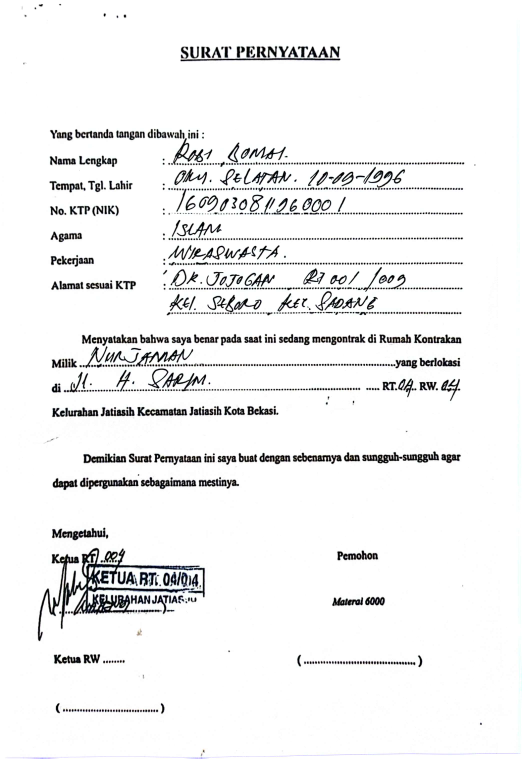 SURAT PERNYATAAN
Yang bertanda tangan dibawah ini :
Nama Lengkap : ROBI
Tempat, Tgl. Lahir : OKU. SELATAN. 10-09-1996
No. KTP (NIK) :
Agama : ISLAM
Pekerjaan : WIRASWASTA.
Alamat sesuai KTP : DK. JOJOGAN RT 001 /009
KEL SEBORO KEC. SADANG
Menyatakan bahwa saya benar pada saat ini sedang mengontrak di Rumah Kontrakan
Milik NURJAMAN yang berlokasi
di Jl. H. SARIM. RT.04. RW. 04
Kelurahan Jatiasih Kecamatan Jatiasih Kota Bekasi.
Demikian Surat Pernyataan ini saya buat dengan sebenarnya dan sungguh-sungguh agar
dapat dipergunakan sebagaimana mestinya.
Mengetahui,
Ketua RT 004 Pemohon
KETUA RT. 04/04
KELURAHAN JATIASIH
Materai 6000
Ketua RW ........ ( ...................................... )
( ................................ )